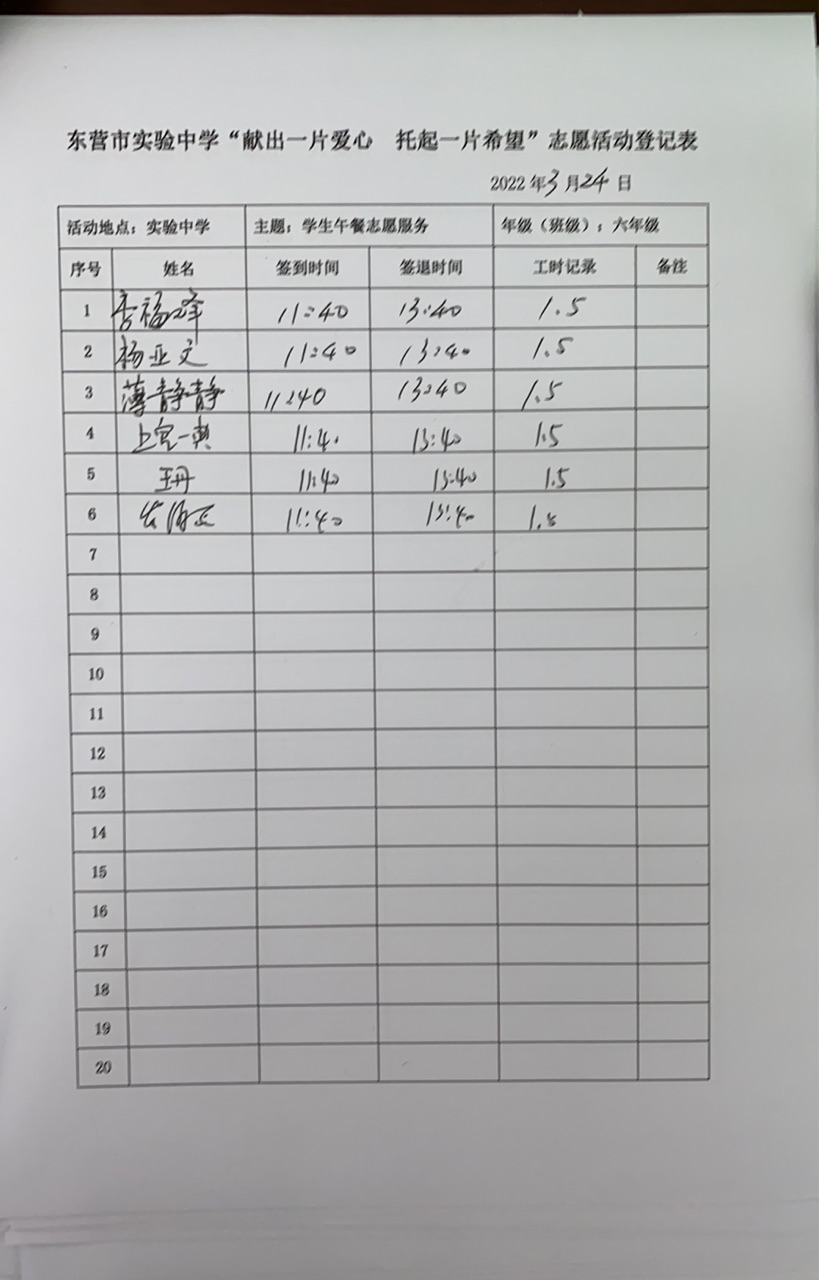 东营市实验中学“献出一片爱心 托起一片希望”志愿活动登记表
2022年3月24日
活动地点：实验中学 主题：学生午餐志愿服务 年级（班级）：六年级
序号 姓名 签到时间 签退时间 工时记录 备注
1 李福峰 11:40 13:40 1.5
2 杨亚文 11:40 13:40 1.5
3 薄静静 11:40 13:40 1.5
4 上官一 11:40 13:40 1.5
5 王丹 11:40 13:40 1.5
6 11:40 13:40 1.5
7
8
9
10
11
12
13
14
15
16
17
18
19
20